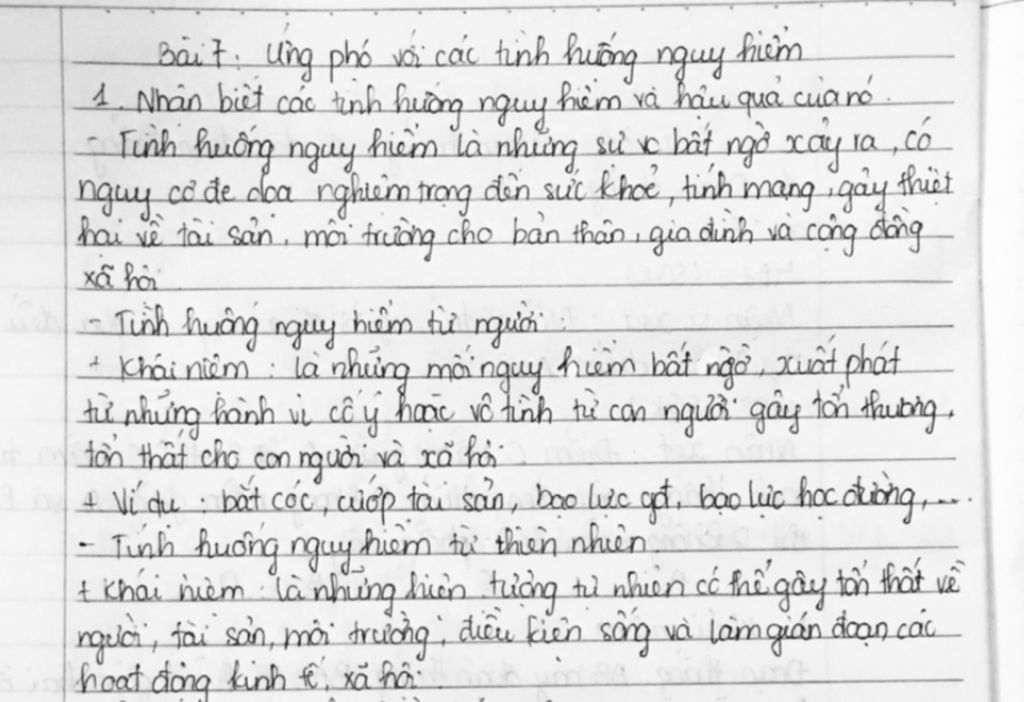 Bài 7: Ứng phó với các tình huống nguy hiểm
1. Nhận biết các tình huống nguy hiểm và hậu quả của nó.
- Tình huống nguy hiểm là những sự vc bất ngờ xảy ra, có
nguy cơ đe dọa nghiêm trọng đến sức khoẻ, tính mạng, gây thiệt
hại về tài sản, môi trường cho bản thân, gia đình và cộng đồng
xã hội
- Tình huống nguy hiểm từ người
+ Khái niệm: là những mối nguy hiểm bất ngờ, xuất phát
từ những hành vi cố ý hoặc vô tình từ con người gây tổn thương,
tổn thất cho con người và xã hội
+ Ví dụ: bắt cóc, cướp tài sản, bạo lực gđ, bạo lực học đường,...
- Tình huống nguy hiểm từ thiên nhiên
+ Khái niệm: là những hiện tượng tự nhiên có thể gây tổn thất về
người, tài sản, môi trường, điều kiện sống và làm gián đoạn các
hoạt động kinh tế, xã hội.